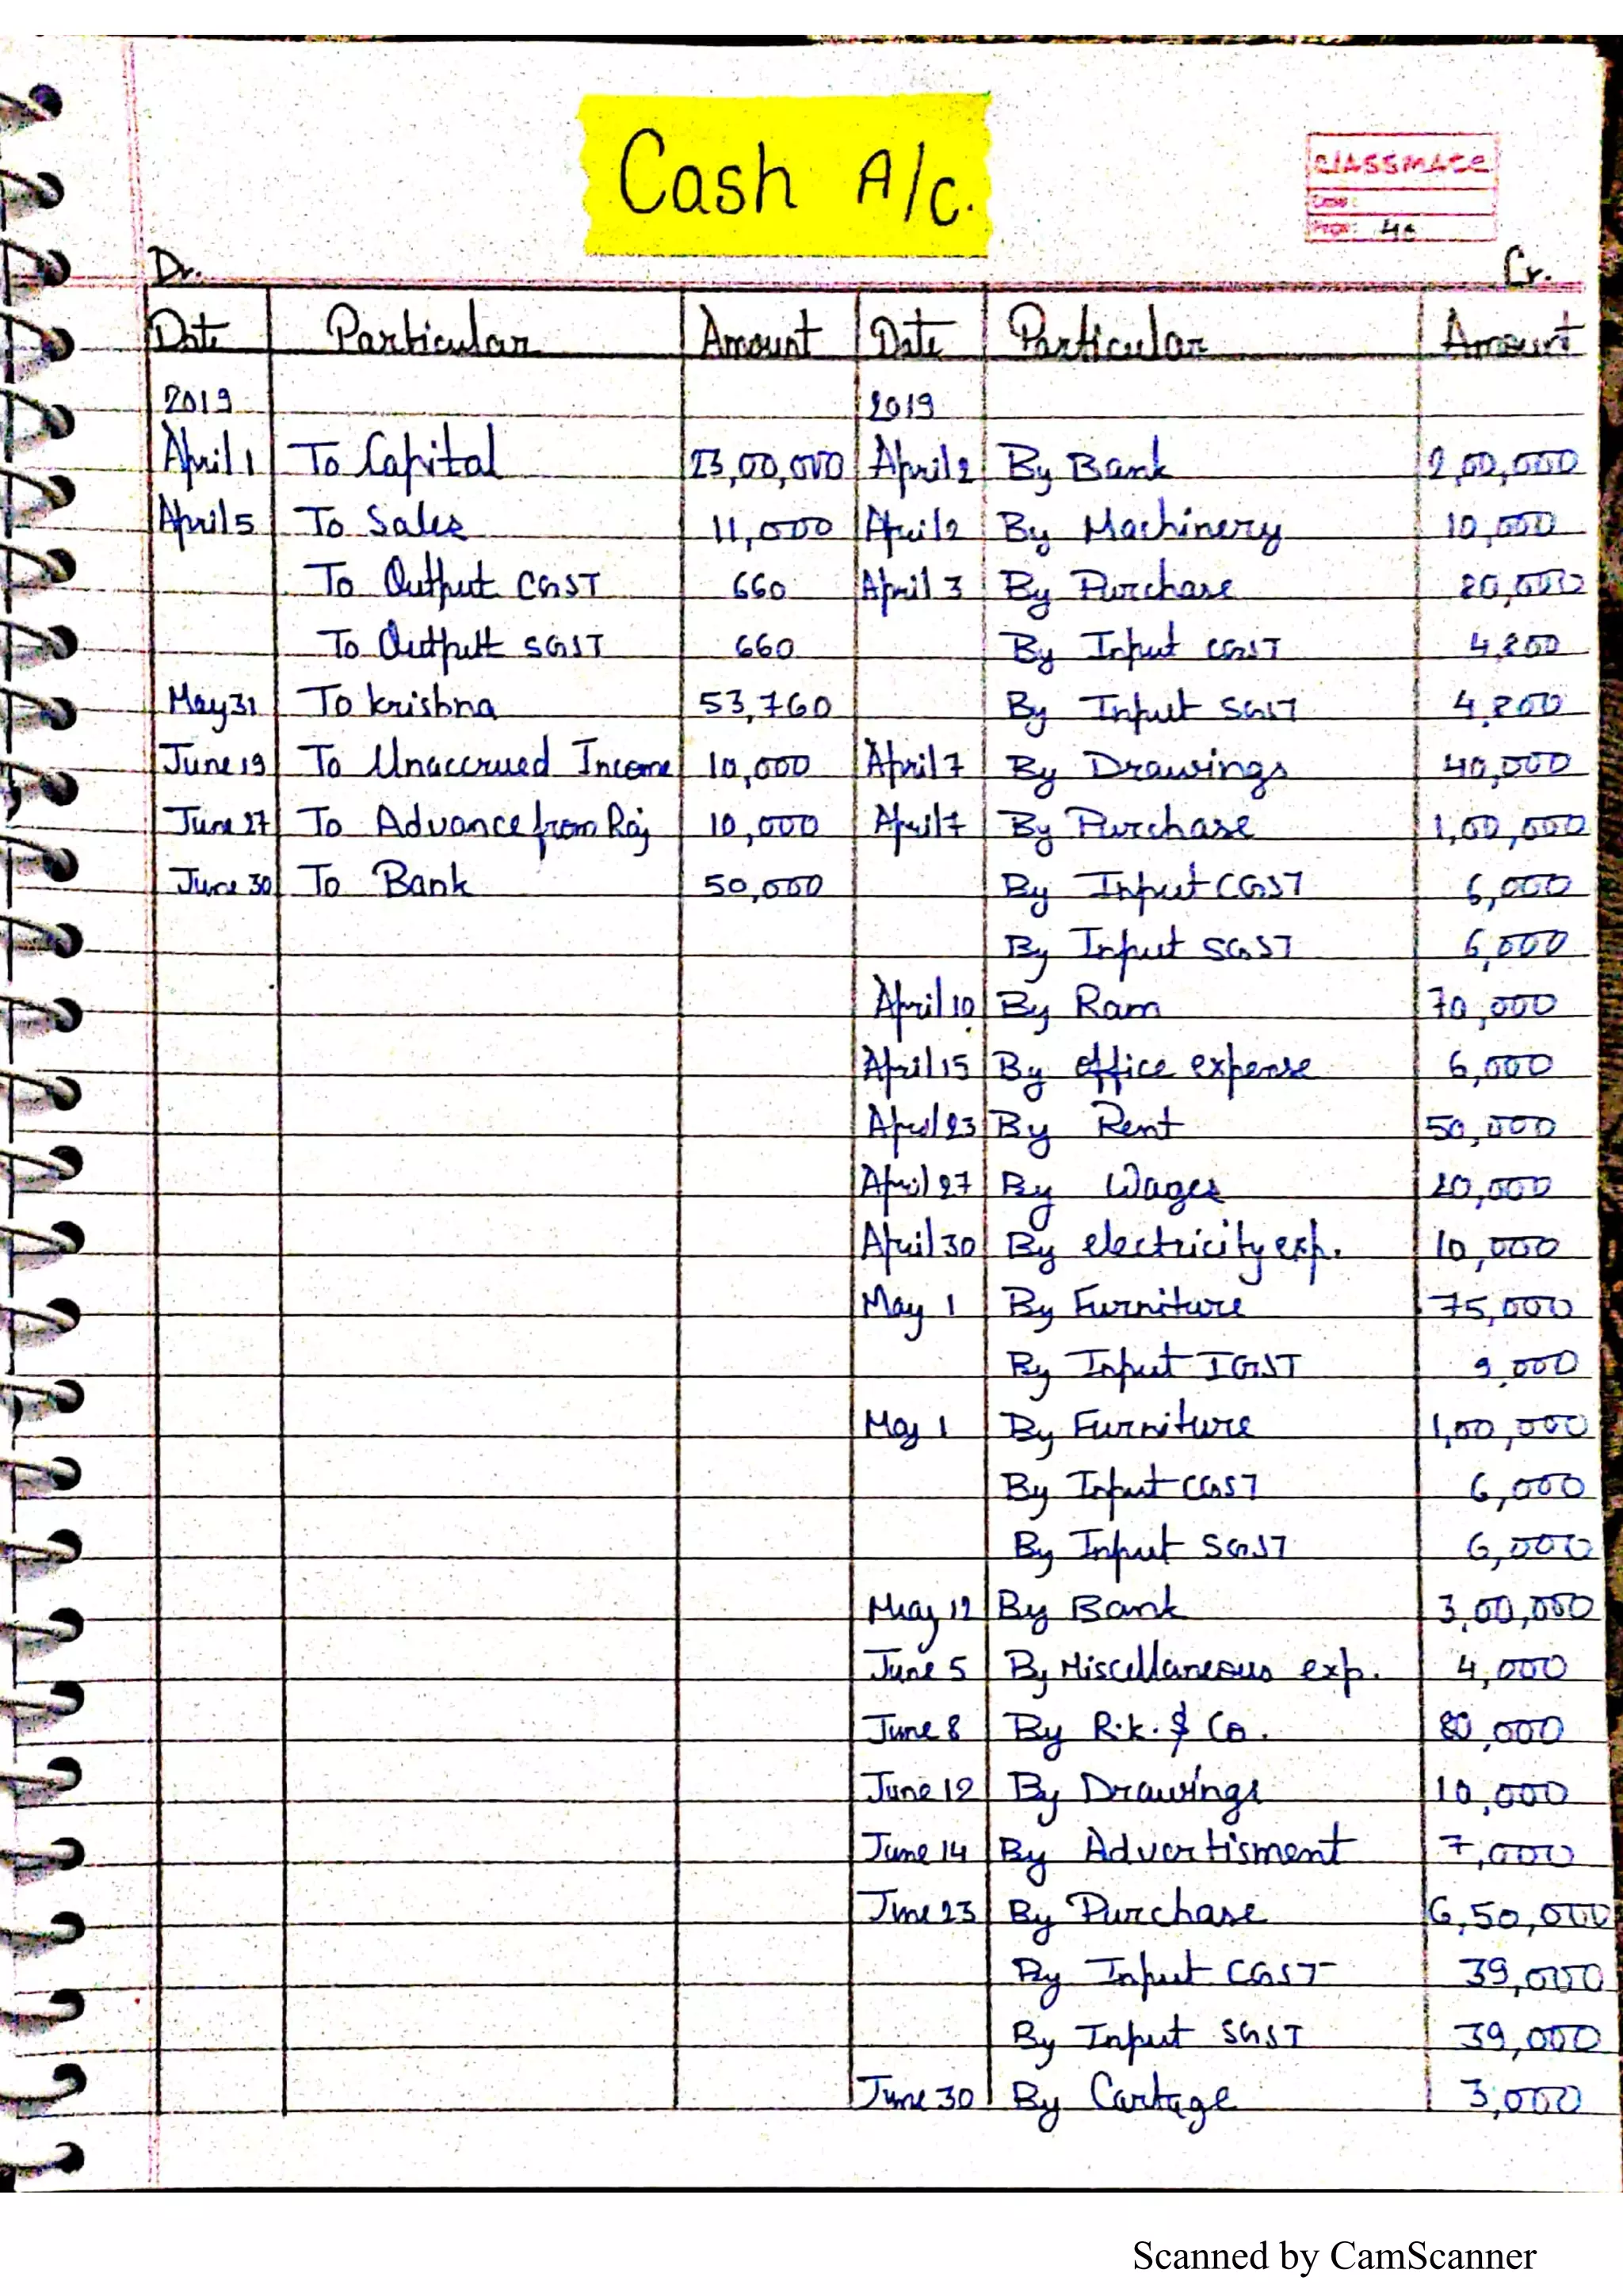 Cash A/c.
classmate
Date :
Page : 40
Dr. Cr.
Date Particular Amount Date Particular Amount
2019 2019
April 1 To Capital 23,00,000 April 2 By Bank 2,00,000
April 5 To Sales 11,000 April 2 By Machinery 10,000
To Output CGST 660 April 3 By Purchase 20,000
To Output SGST 660 By Input CGST 4,200
May 31 To krishna 53,760 By Input SGST 4,200
June 19 To Unaccrued Income 10,000 April 7 By Drawings 40,000
June 27 To Advance from Raj 10,000 April 7 By Purchase 1,00,000
June 30 To Bank 50,000 By Input CGST 6,000
By Input SGST 6,000
April 10 By Ram 70,000
April 15 By office expense 6,000
April 23 By Rent 50,000
April 27 By Wages 20,000
April 30 By electricity exp. 10,000
May 1 By Furniture 75,000
By Input IGST 9,000
May 1 By Furniture 1,00,000
By Input CGST 6,000
By Input SGST 6,000
May 12 By Bank 3,00,000
June 5 By Miscellaneous exp. 4,000
June 8 By R.k. & Co. 80,000
June 12 By Drawings 10,000
June 14 By Advertisment 7,000
June 23 By Purchase 6,50,000
By Input CGST 39,000
By Input SGST 39,000
June 30 By Cartage 3,000
Scanned by CamScanner